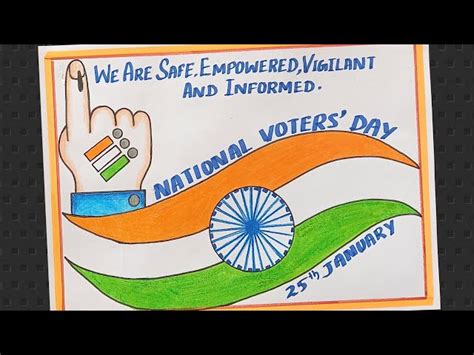 WE ARE SAFE, EMPOWERED, VIGILANT
AND INFORMED.
NATIONAL VOTERS' DAY
25th JANUARY